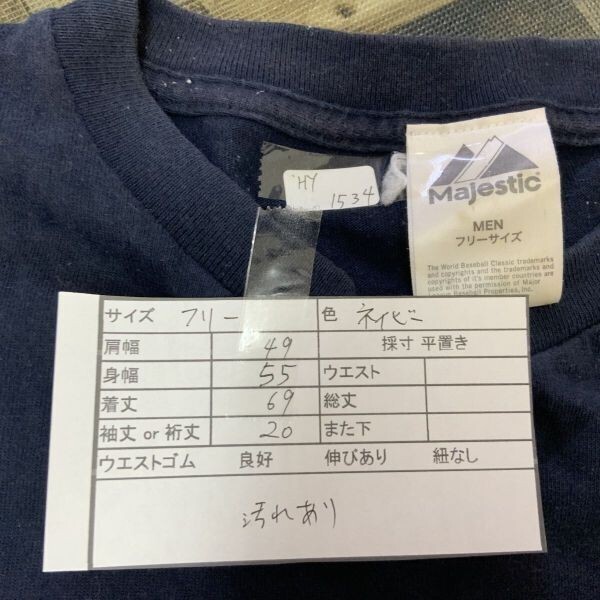 HY
1534
Majestic
MEN
フリーサイズ
The World Baseball Classic trademarks
and copyrights and the trademarks and
copyrights of it's member countries are
used with the permission of Major
Baseball Properties, Inc.
サイズ フリー 色 ネイビー
肩幅 49 採寸 平置き
身幅 55 ウエスト
着丈 69 総丈
袖丈 or 裄丈 20 また下
ウエストゴム 良好 伸びあり 紐なし
汚れあり